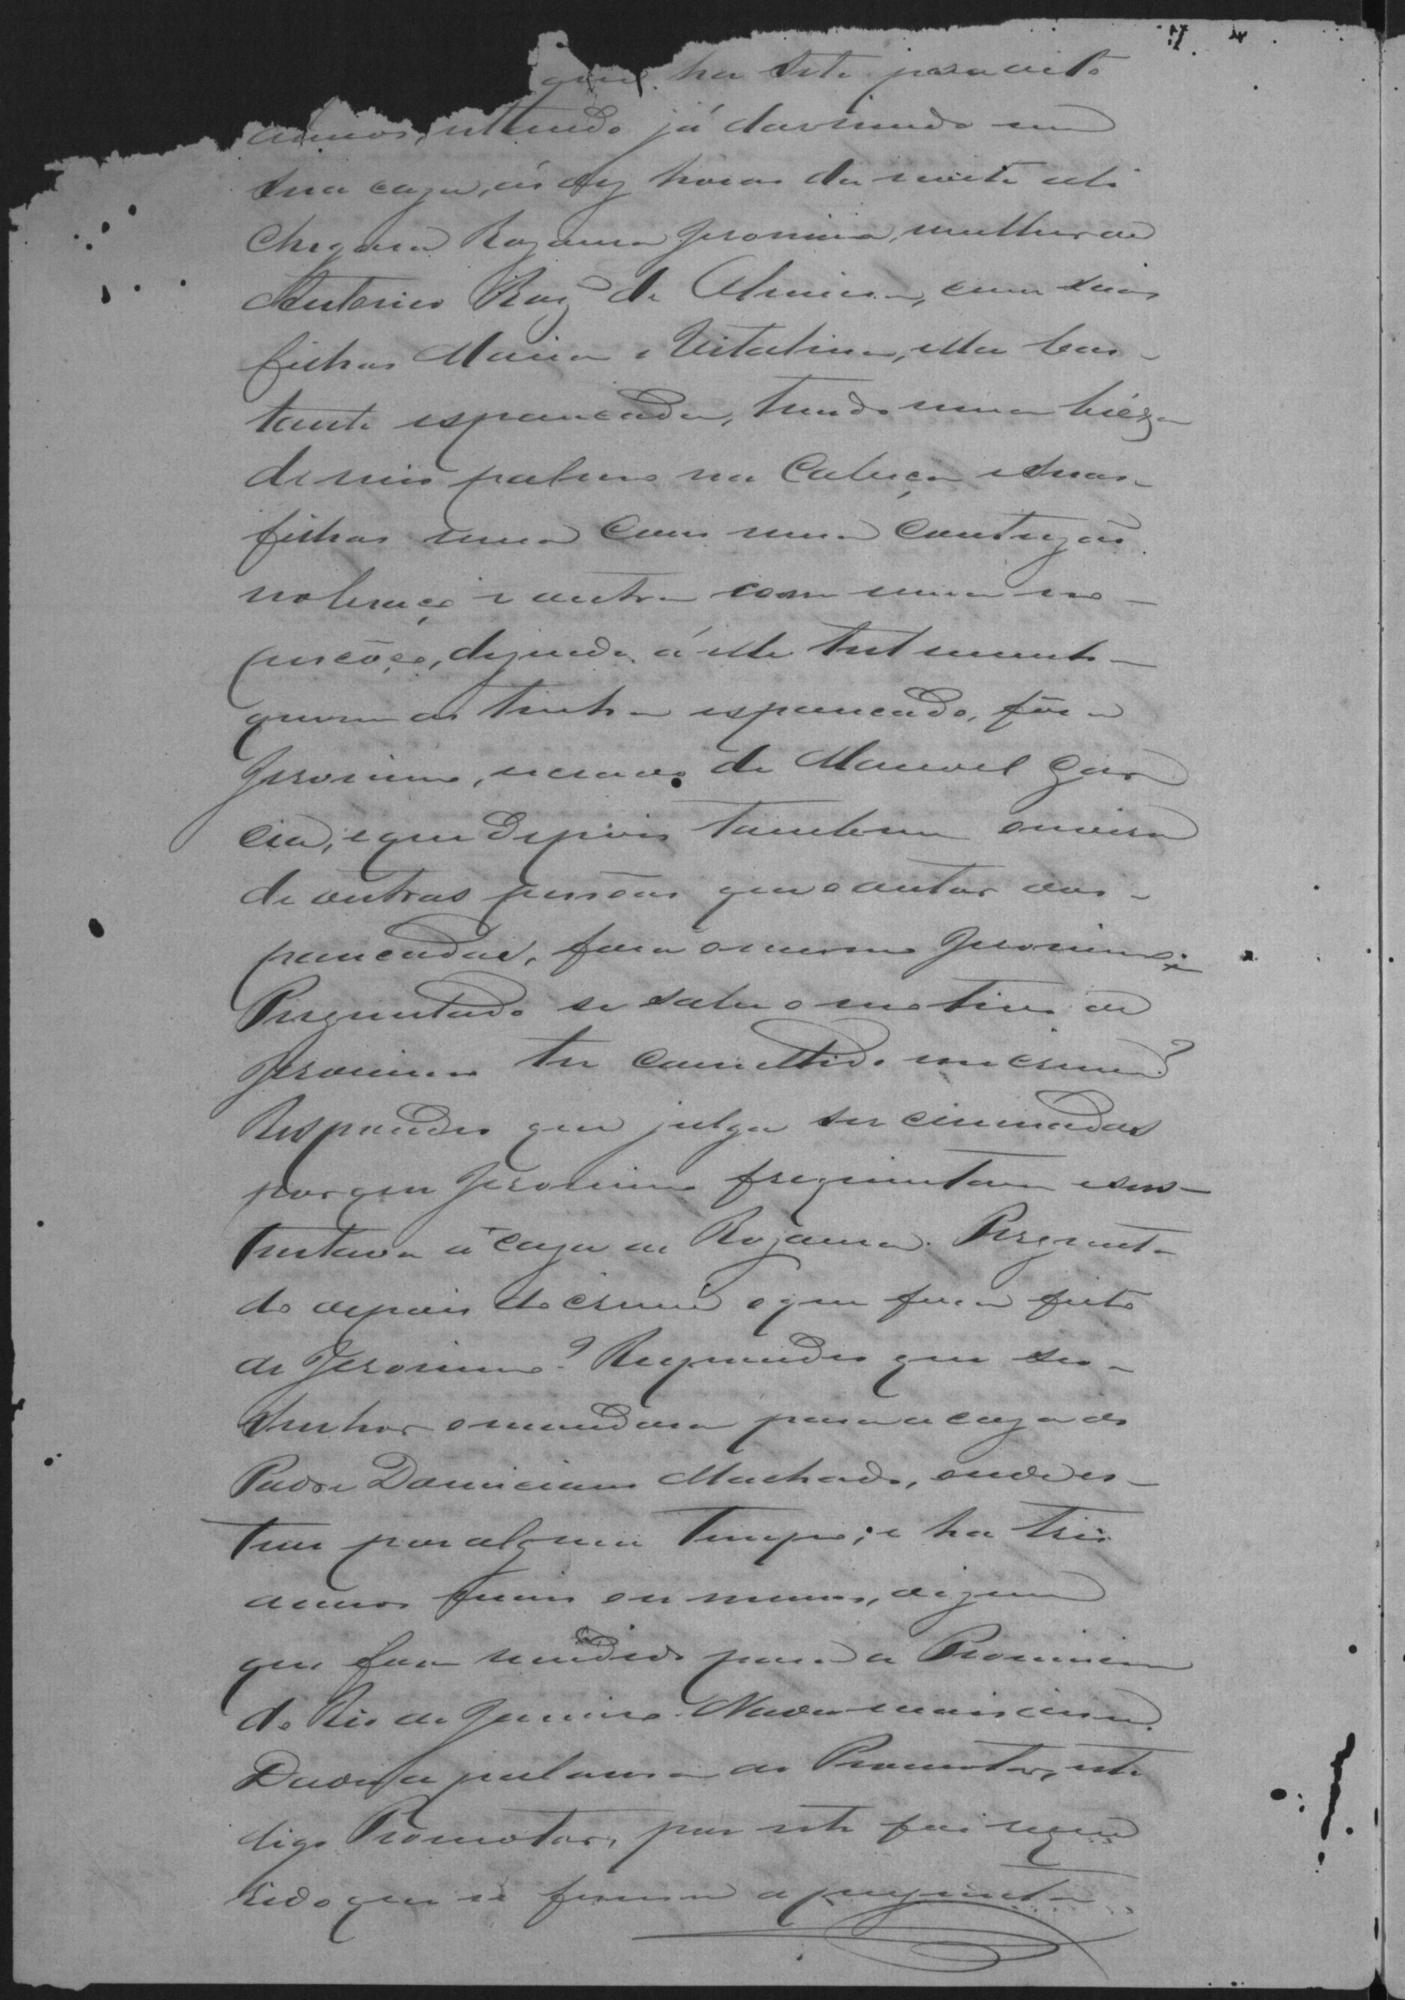 que ha sete para oito
annos, estando já dormindo em
sua caza, ás dez horas da noite ali
chegara Rozaura Jeronima, mulher de
Antonio Roiz de Almeida, com suas
filhas Maria e Vitalina, ella bas-
tante espancada, tendo uma
de meio palmo na cabeça e suas
filhas uma com uma contuzão
no braço e outra com uma no
pescoço, dizendo á elle testemunha
quem as tinha espancado, fôra
Jeronimo, escravo de Manoel Gar
cia, e que depois tambem ouvira
de outras pessôas que o autor das
pancadas, fora o mesmo Jeronimo.
Perguntado se sabe o motivo de
Jeronimo ter comettido um crime?
Respondeu que julga ser ciumadas
porque Jeronimo frequentava e sus-
tentava á caza de Rozaura. Pergunta-
do depois do crime o que fora feito
de Jeronimo? Respondeu que seo
senhor o mandara para a caza do
Padre Domiciano Machado, onde es-
teve por algum tempo; e ha tres
annos mais ou menos, dizem
que fora vendido para a Provincia
do Rio de Janeiro. Nada mais disse.
Dada a palavra ao Promotor, este
digo Promotor, por este foi reque
rido que se fizesse a pergunta